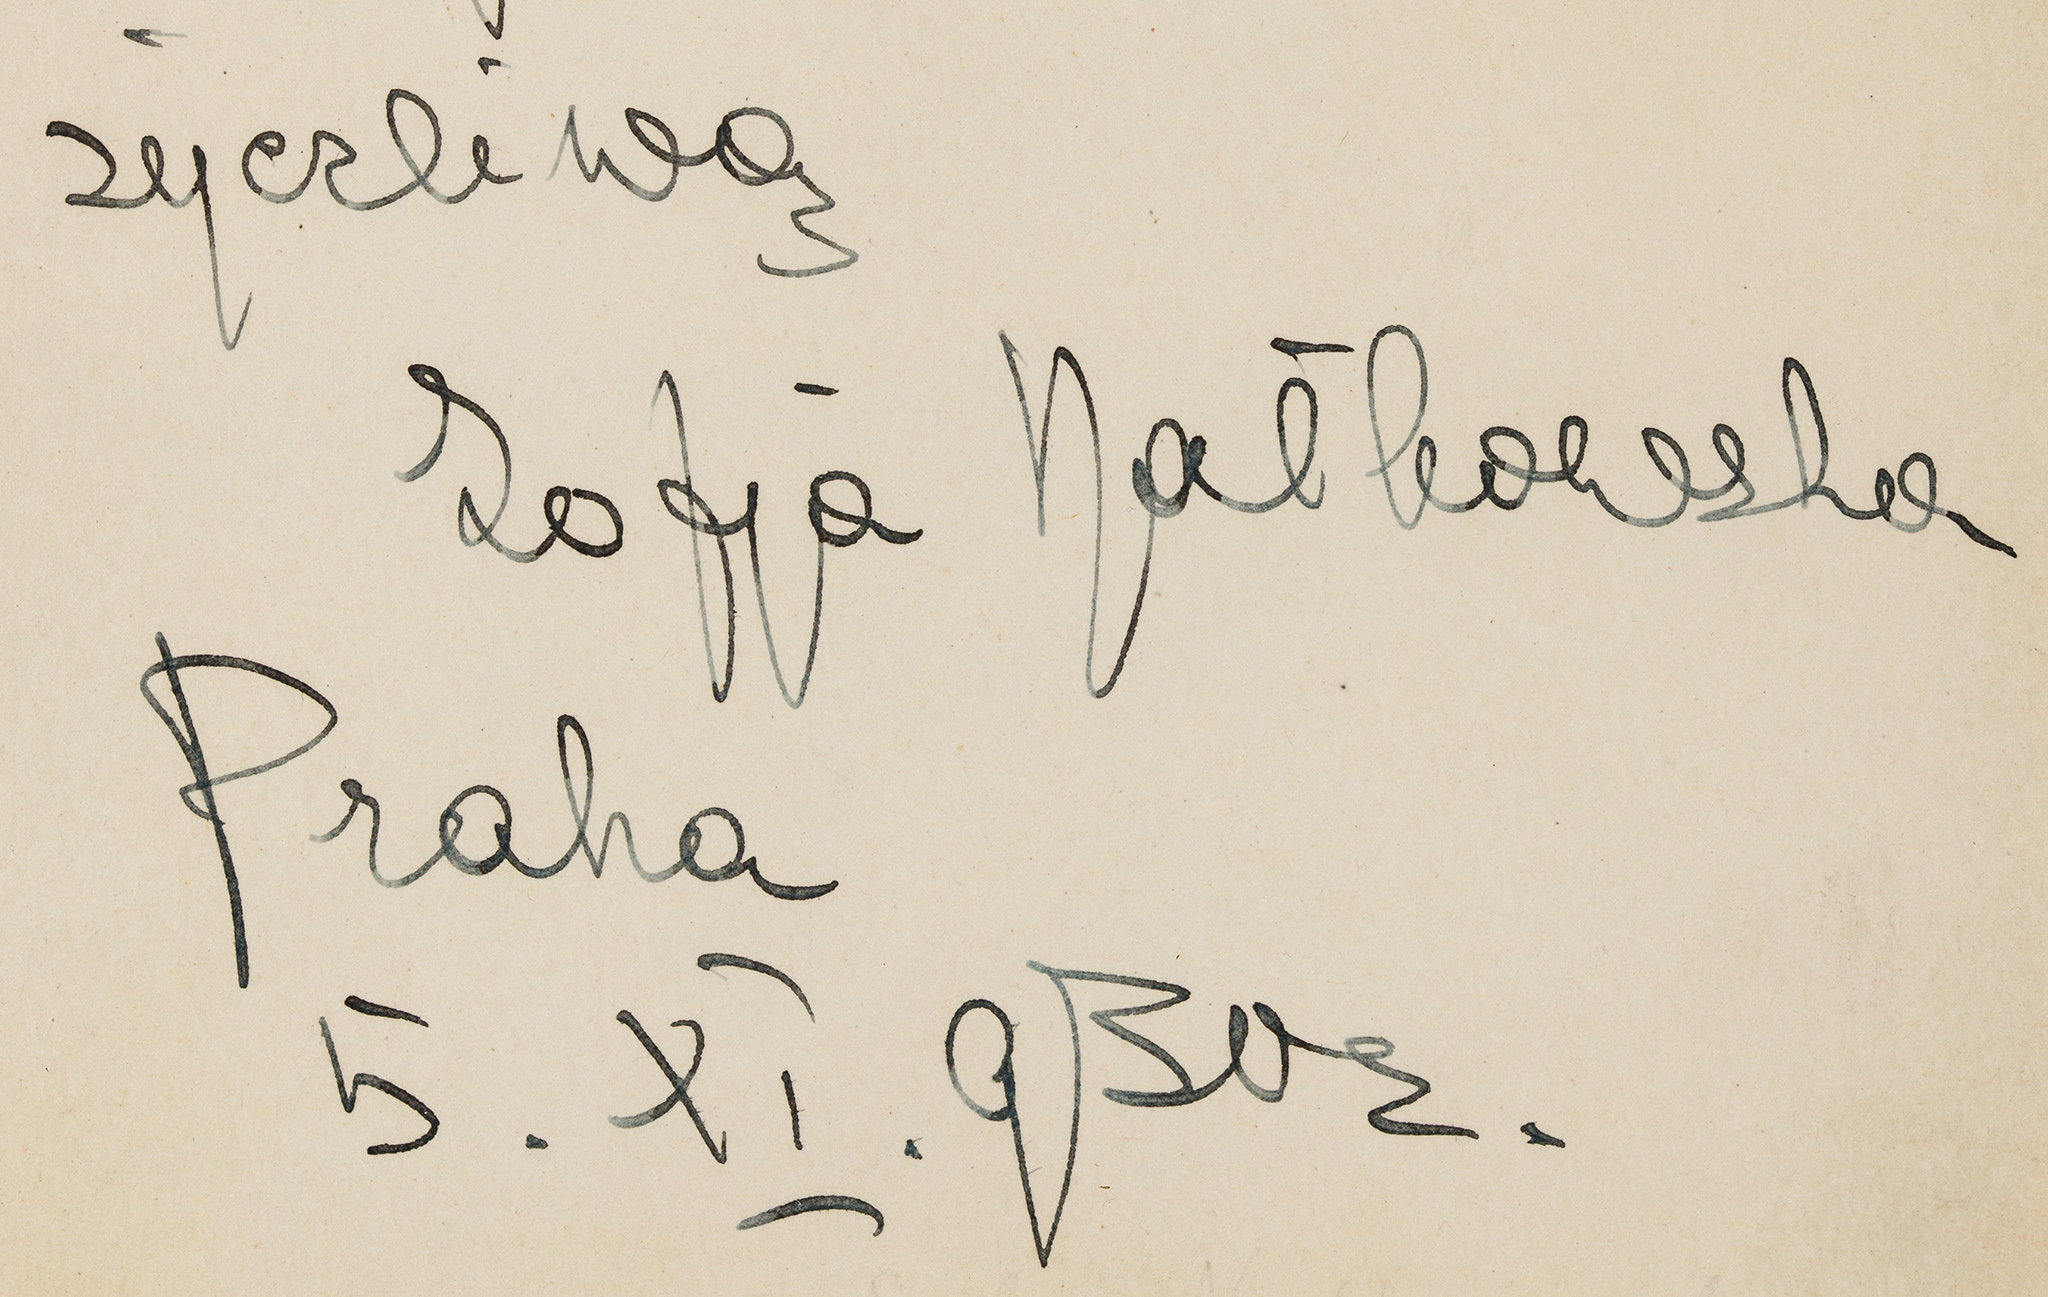 życzliwą
Zofja Nałkowska
Praha
5. XI. 930 r.